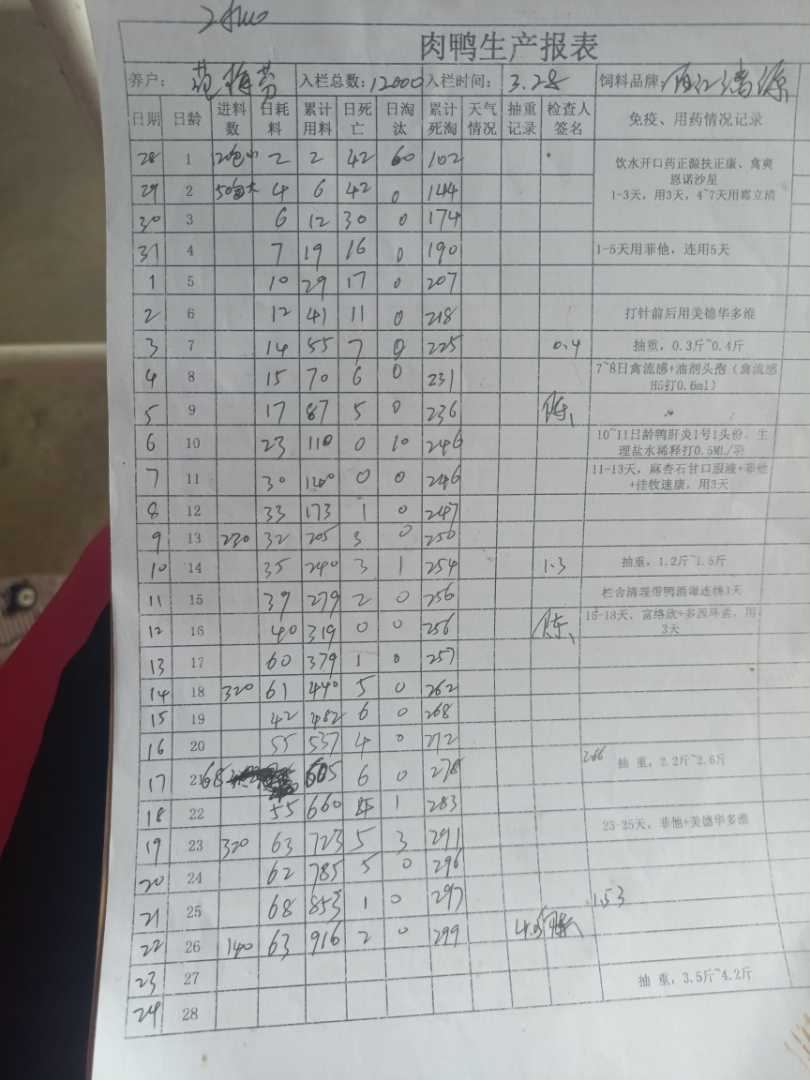 肉鸭生产报表
养户： 范梅芬 入栏总数：12000 入栏时间：3.28 饲料品牌
日期 日龄 进料数 日耗料 累计用料 日死亡 日淘汰 累计死淘 天气情况 抽重记录 检查人签名 免疫、用药情况记录
28 1 20包小 2 2 42 60 102 饮水开口药正源扶正康、禽爽
恩诺沙星
29 2 50包大 4 6 42 0 144 1-3天，用3天，4~7天用霉立清
30 3 6 12 30 0 174
31 4 7 19 16 0 190 1-5天用菲他，连用5天
1 5 10 29 17 0 207
2 6 12 41 11 0 218 打针前后用美德华多维
3 7 14 55 7 0 225 0.4 抽重，0.3斤~0.4斤
4 8 15 70 6 0 231 7~8日禽流感+油剂头孢（禽流感
H5打0.6ml）
5 9 17 87 5 0 236 陈
6 10 23 110 0 10 246 10~11日龄鸭肝炎1号1头份，生
理盐水稀释打0.5ML/羽
7 11 30 140 0 0 246 11-13天，麻杏石甘口服液+菲他
+佳牧速康，用3天
8 12 33 173 1 0 247
9 13 230 32 205 3 0 250
10 14 35 240 3 1 254 1.3 抽重，1.2斤~1.5斤
11 15 39 279 2 0 256 栏舍清理带鸭消毒连续3天
12 16 40 319 0 0 256 陈 15-18天，富络欣+多西环素，用
3天
13 17 60 379 1 0 257
14 18 320 61 440 5 0 262
15 19 42 482 6 0 268
16 20 55 537 4 0 272
17 21 68 605 6 0 278 2.66 抽 重，2.2斤~2.6斤
18 22 55 660 4 1 283
19 23 320 63 723 5 3 291 23-25天，菲他+美德华多维
20 24 62 785 5 0 296
21 25 68 853 1 0 297 1.53
22 26 140 63 916 2 0 299 4.5 陈
23 27 抽 重，3.5斤~4.2斤
24 28